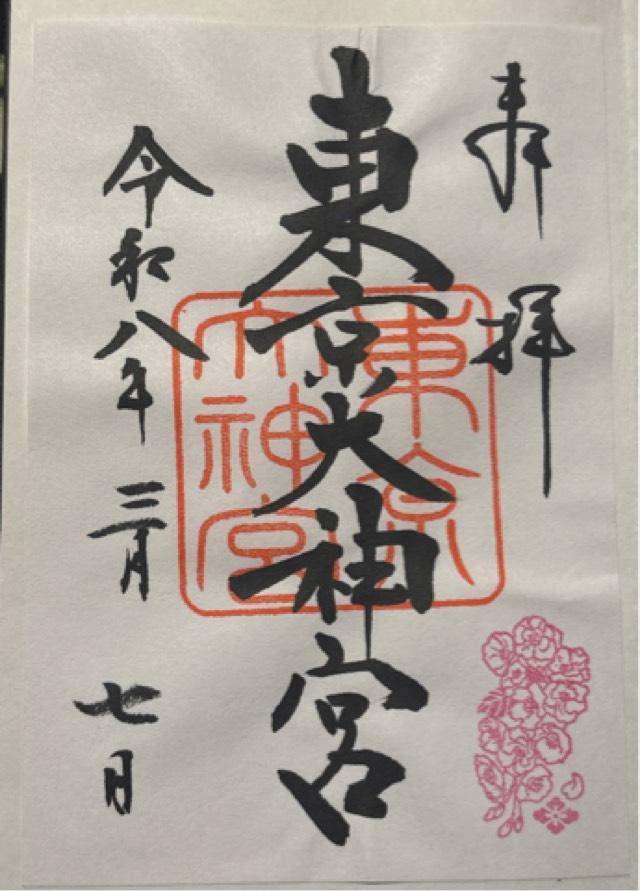 奉拝
東京大神宮
東京大神宮
令和八年三月七日